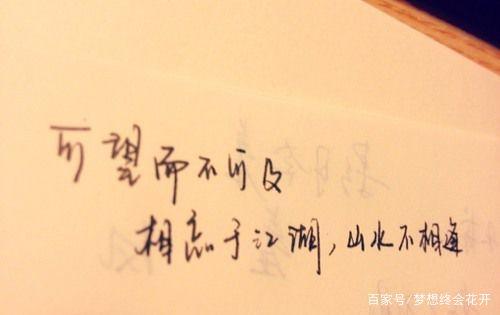 可望而不可及
相忘于江湖,山水不相逢
百家号/梦想终会花开